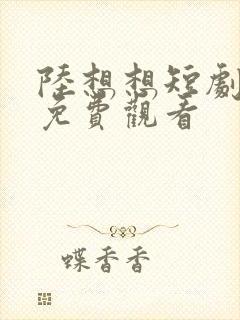 陸想想短劇
免費觀看
蝶香香